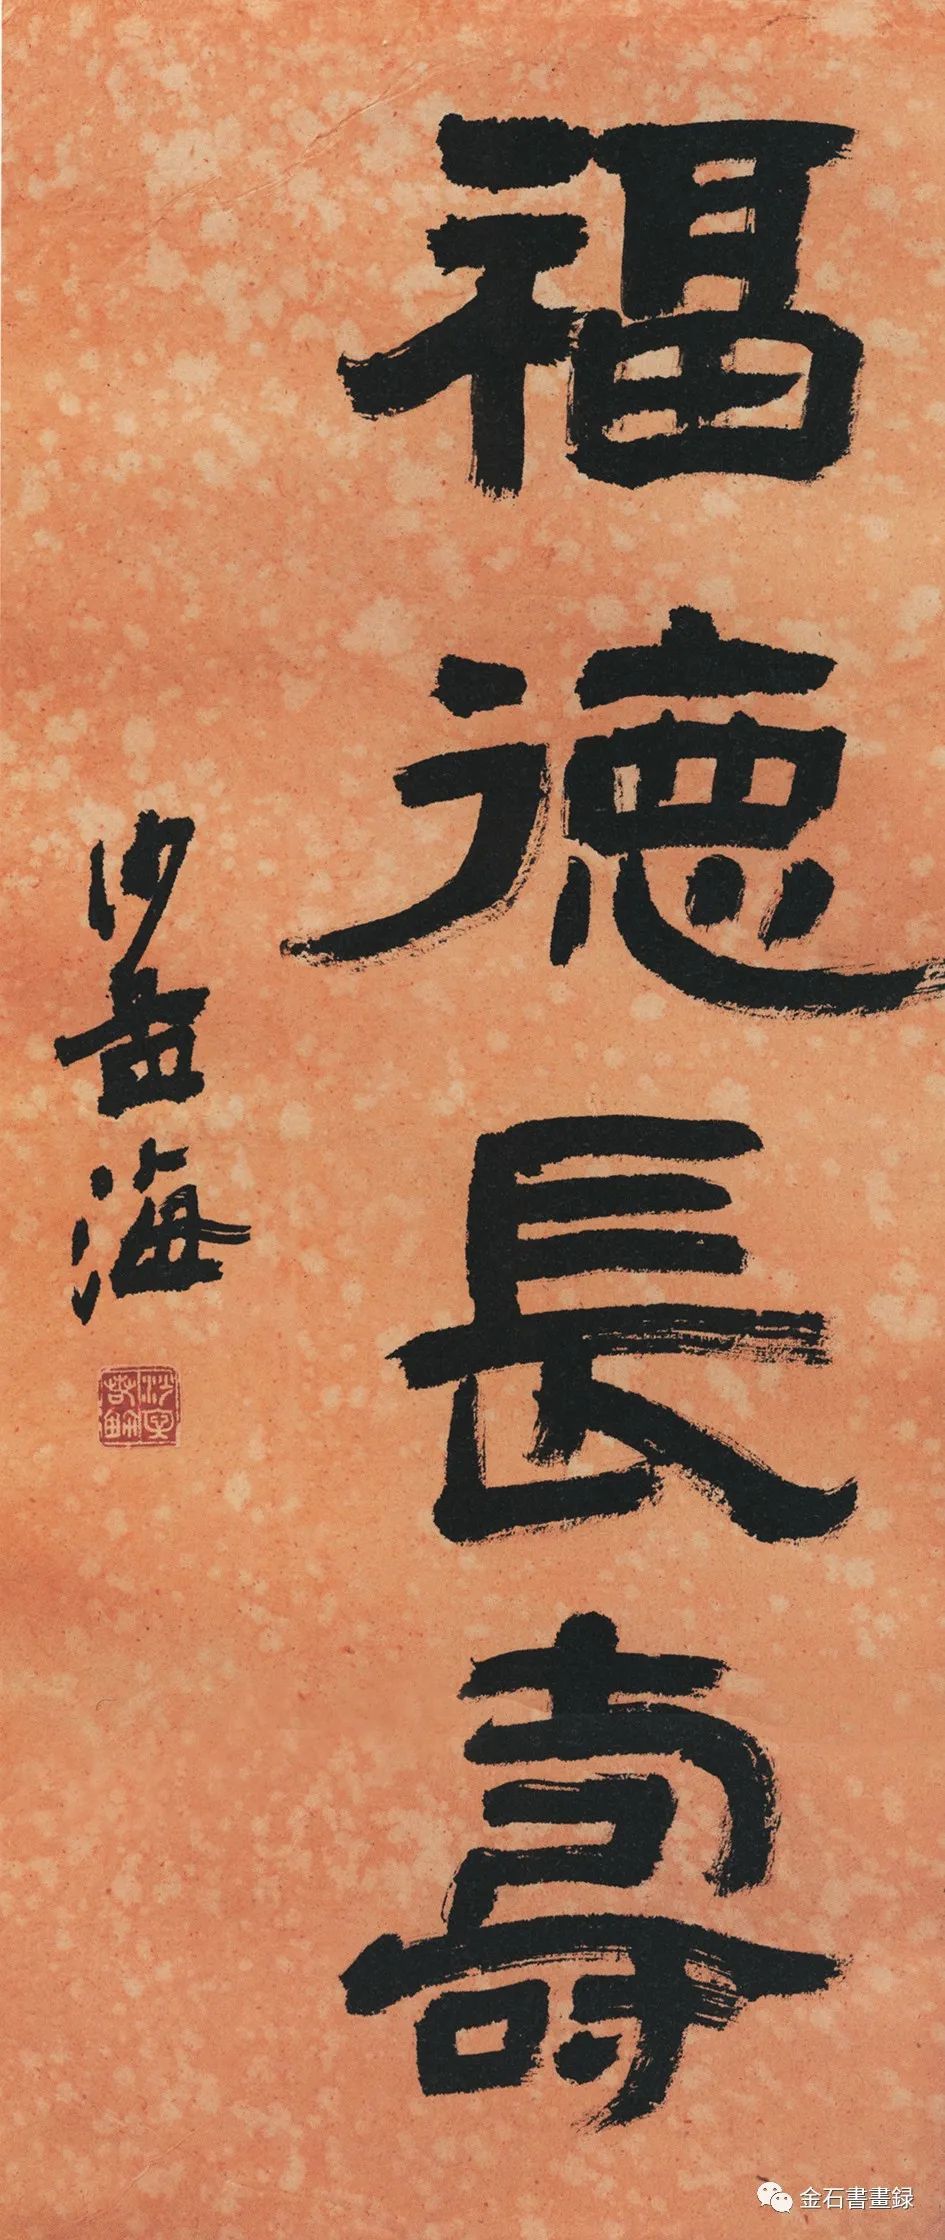 福德長壽
沙孟海
金石書畫録